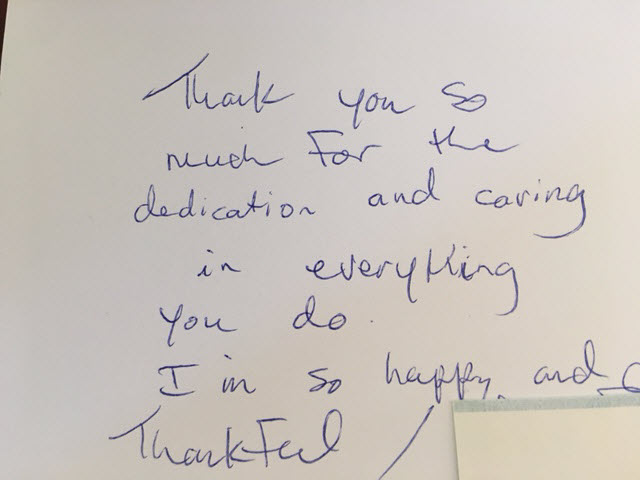 Thank you so
much For the
dedication and caring
in everything
you do.
I'm so happy, and
ThankFul